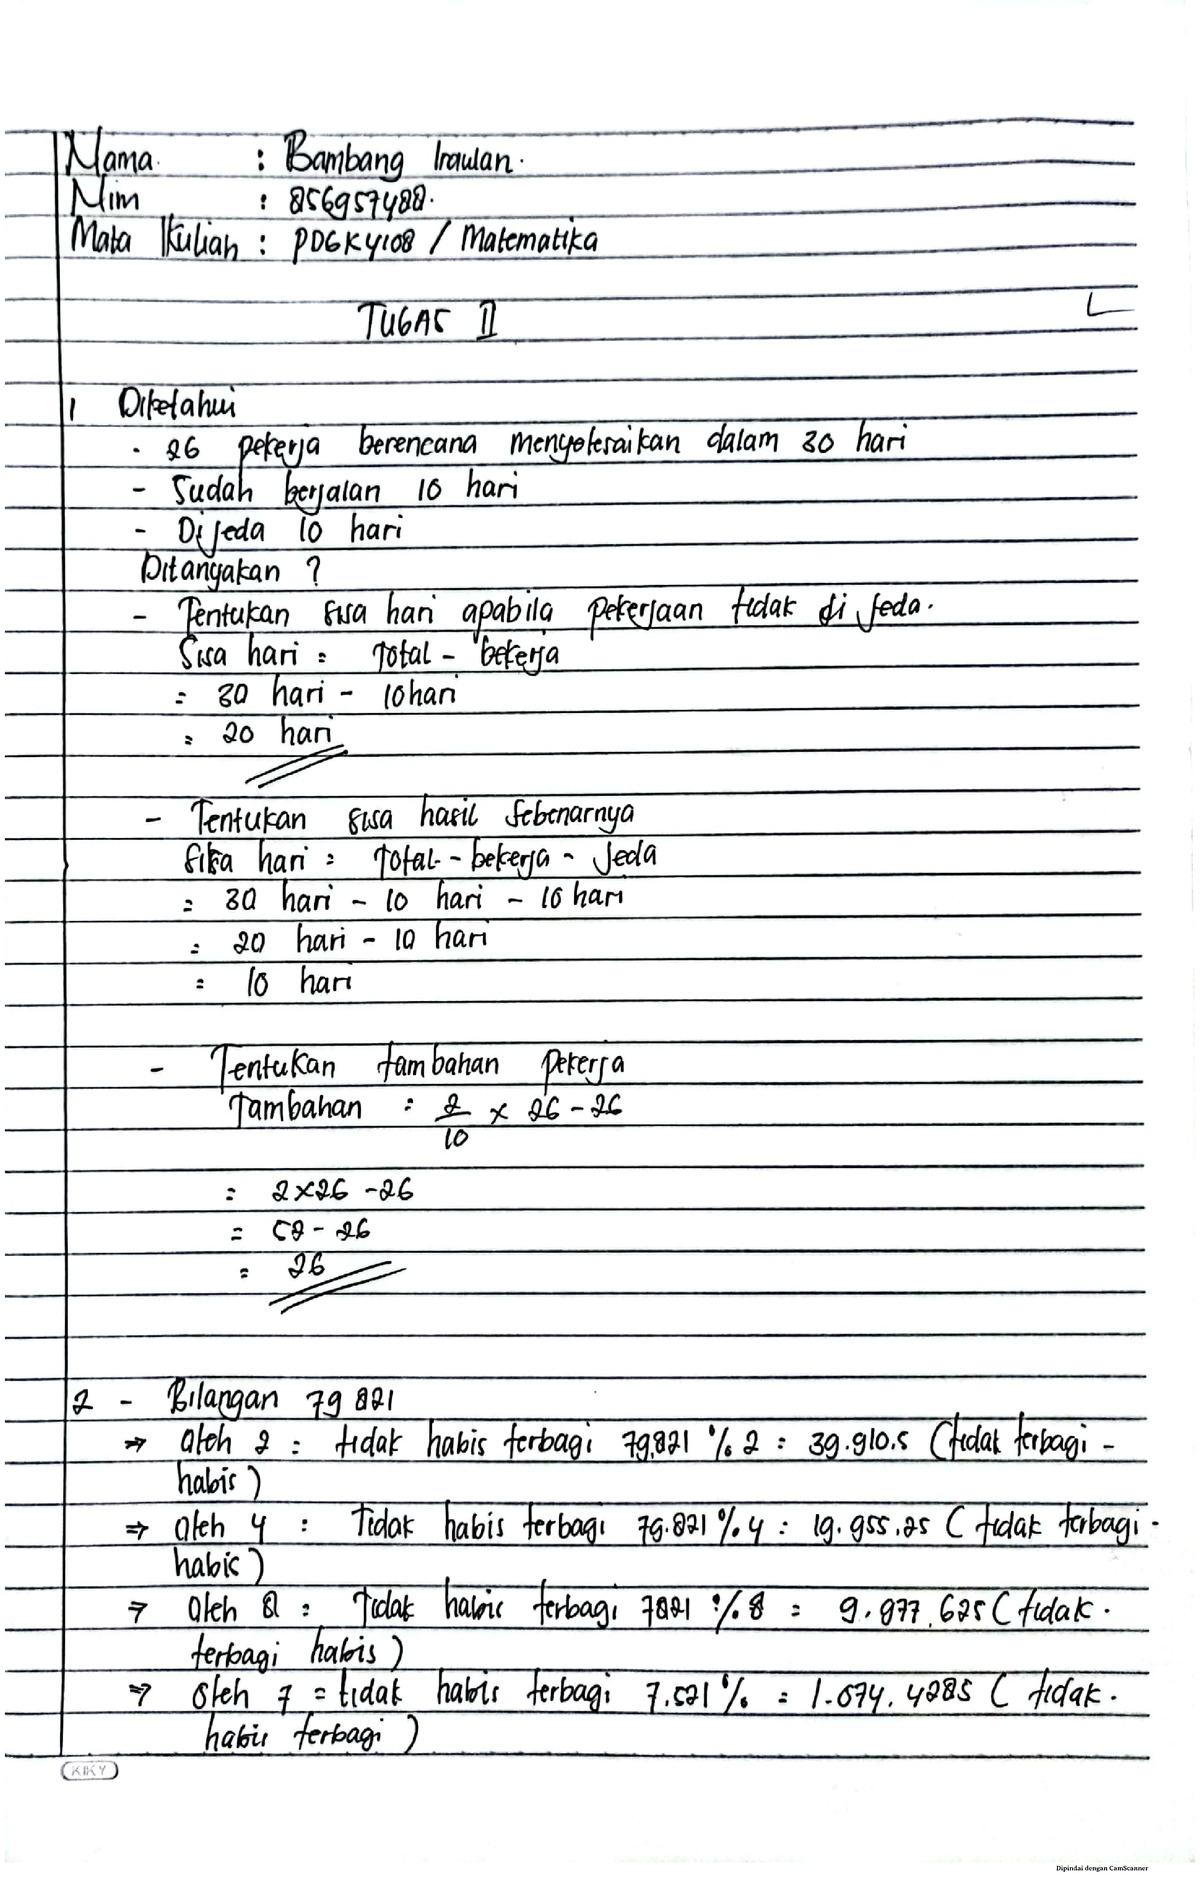 Nama : Bambang Irawan.
Nim : 856957488.
Mata Kuliah : PDGK4108 / Matematika
TUGAS II
1 Diketahui
- 26 pekerja berencana menyelesaikan dalam 30 hari
- Sudah berjalan 10 hari
- Dijeda 10 hari
Ditanyakan ?
- Tentukan sisa hari apabila pekerjaan tidak di jeda.
Sisa hari = Total - bekerja
= 30 hari - 10 hari
= 20 hari
- Tentukan sisa hasil sebenarnya
Sisa hari = Total - bekerja - Jeda
= 30 hari - 10 hari - 10 hari
= 20 hari - 10 hari
= 10 hari
- Tentukan tambahan pekerja
Tambahan = 2/10 x 26 - 26
= 2x26 - 26
= 52 - 26
= 26
2 - Bilangan 79 821
⇒ oleh 2 : tidak habis terbagi 79.821 % 2 = 39.910.5 (tidak terbagi -
habis)
⇒ oleh 4 : Tidak habis terbagi 79.821 % 4 = 19.955.25 (tidak terbagi -
habis)
⇒ oleh 8 : Tidak habis terbagi 7821 % 8 = 9.977.625 (tidak.
terbagi habis)
⇒ oleh 7 = tidak habis terbagi 7.521 % = 1.074.4285 (tidak.
habis terbagi)
KIKY
Dipindai dengan CamScanner